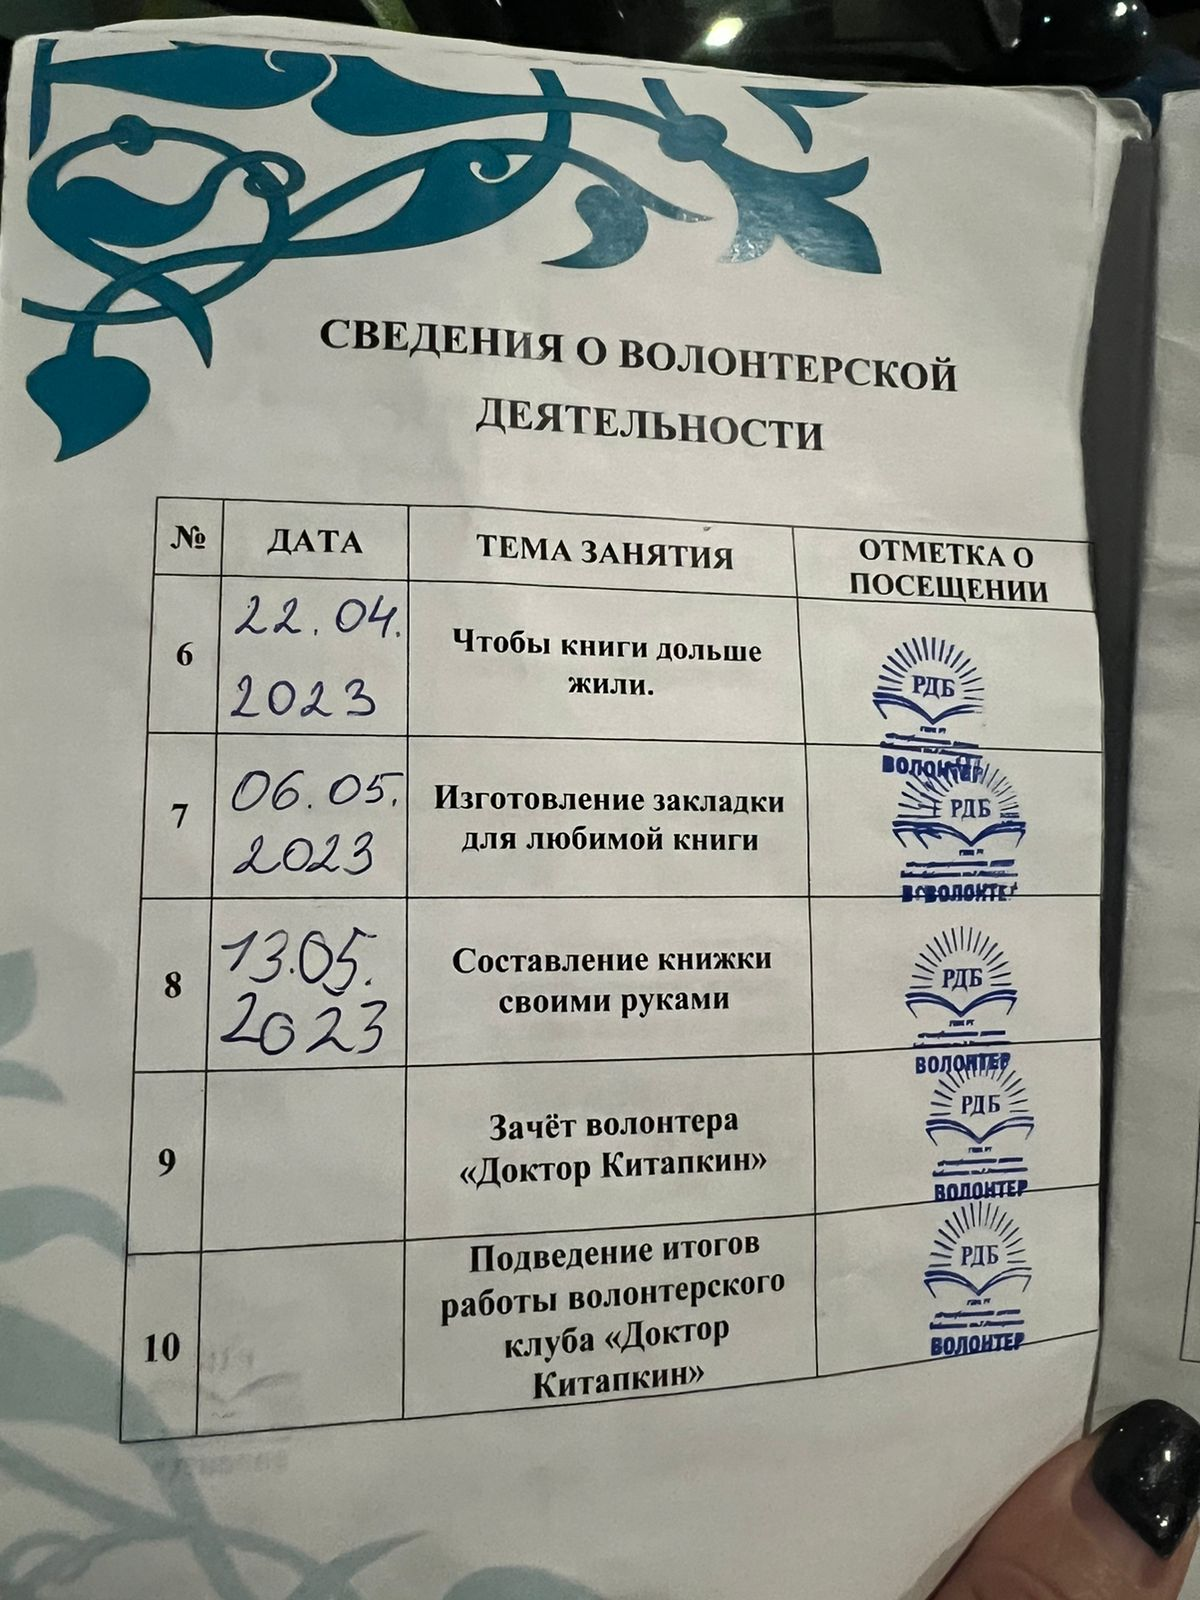 СВЕДЕНИЯ О ВОЛОНТЕРСКОЙ
ДЕЯТЕЛЬНОСТИ
№ ДАТА ТЕМА ЗАНЯТИЯ ОТМЕТКА О
ПОСЕЩЕНИИ
6
22.04.
2023
Чтобы книги дольше
жили.
РДБ
ВОЛОНТЕР
7
06.05.
2023
Изготовление закладки
для любимой книги
РДБ
ВОЛОНТЕР
8
13.05.
2023
Составление книжки
своими руками
РДБ
ВОЛОНТЕР
9
Зачёт волонтера
«Доктор Китапкин»
РДБ
ВОЛОНТЕР
10
Подведение итогов
работы волонтерского
клуба «Доктор
Китапкин»
РДБ
ВОЛОНТЕР